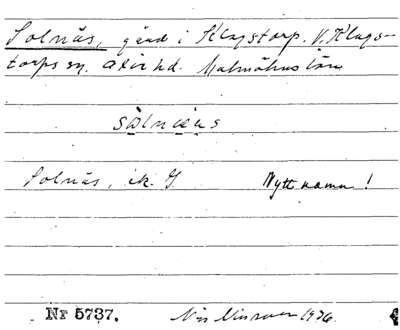 Solnäs, gård i Klagstorp. V. Klags-
torps sn. Oxie hd. Malmöhus län
sòlnæ̀s
Solnäs, ek. J
Nytt namn!
Nr 5737. Nils 1926.